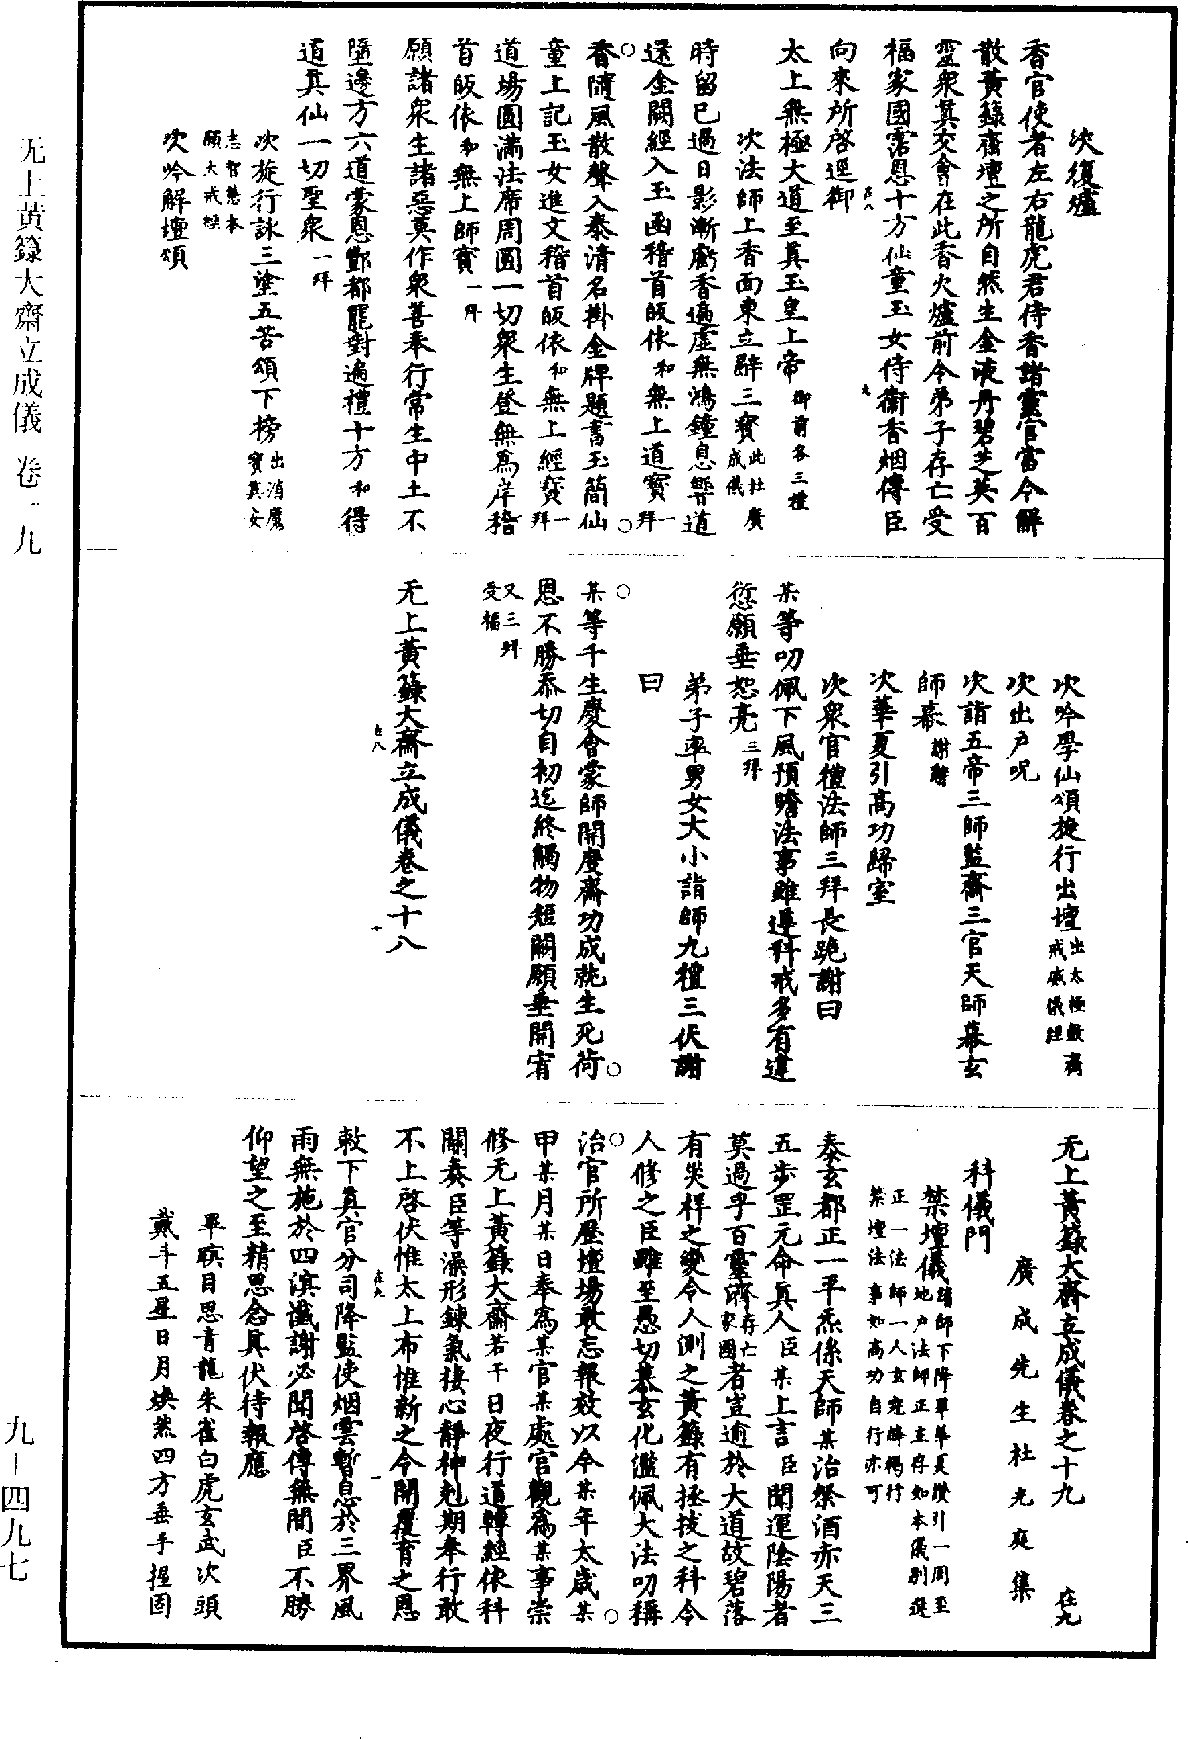 次復爐
香官使者左右龍虎君侍香諸靈官當令解
散黃籙齋壇之所自然生金液丹碧芝英百
靈衆真交會在此香火爐前令弟子存亡受
福家國霑恩十方仙童玉女侍衛香烟傳臣
向來所啓逕御
太上無極大道至真玉皇上帝御前各三禮
次法師上香面東立辭三寶此杜廣成儀
時留已過日影漸虧香遍虛無鴻鐘息響道
還金闕經入玉函稽首皈依和無上道寶一拜
香隨風散聲入泰清名掛金牌題書玉簡仙
童上記玉女進文稽首皈依和無上經寶一拜
道場圓滿法席周圓一切衆生登無爲岸稽
首皈依和無上師寶一拜
願諸衆生諸惡莫作衆善奉行常生中土不
墮邊方六道蒙恩酆都罷對遍禮十方和得
道真仙一切聖衆一拜
次旋行詠三塗五苦頌下榜出消魔寶真安
志智慧本願大戒經
次吟解壇頌
次吟學仙頌旋行出壇出太極敷齋戒威儀經
次出戶呪
次詣五帝三師監齋三官天師幕玄
師幕謝辭
次華夏引高功歸室
次衆官禮法師三拜長跪謝曰
某等叨佩下風預贍法事雖遵科戒多有違
愆願垂恕亮三拜
弟子率男女大小詣師九禮三伏謝
曰
某等千生慶會蒙師開度齋功成就生死荷
恩不勝忝切自初迄終觸物短闕願垂開宥
又三拜受福
无上黃籙大齋立成儀卷之十八
无上黃籙大齋立成儀卷之十九 在九
廣成先生杜光庭集
科儀門
禁壇儀諸師下降畢華夏讚引一周至地戶法師正立存如本儀別選
正一法師一人玄壇臨獨行禁壇法事如高功自行亦可
泰玄都正一平炁係天師某治祭酒赤天三
五步罡元命真人臣某上言臣聞運陰陽者
莫過乎百靈濟存亡家國者豈逾於大道故碧落
有災祥之變令人測之黃籙有拯拔之科令
人修之臣雖至愚切慕玄化濫佩大法叨稱
治官所歷壇場敢忘報效以今某年太歲某
甲某月某日奉爲某官某處官觀爲某事崇
修无上黃籙大齋若干日夜行道轉經依科
關奏臣等澡形鍊氣捿心靜神剋期奉行敢
不上啓伏惟太上布惟新之令開覆育之恩
敕下真官分司降監使烟雲暫息於三界風
雨無施於四溟讖謝必聞啓傳無間臣不勝
仰望之至精思念真伏待報應
畢瞑目思青龍朱雀白虎玄武次頭
戴斗五星日月煥然四方垂手握固
无上黃籙大齋立成儀 卷一九
九－四九七